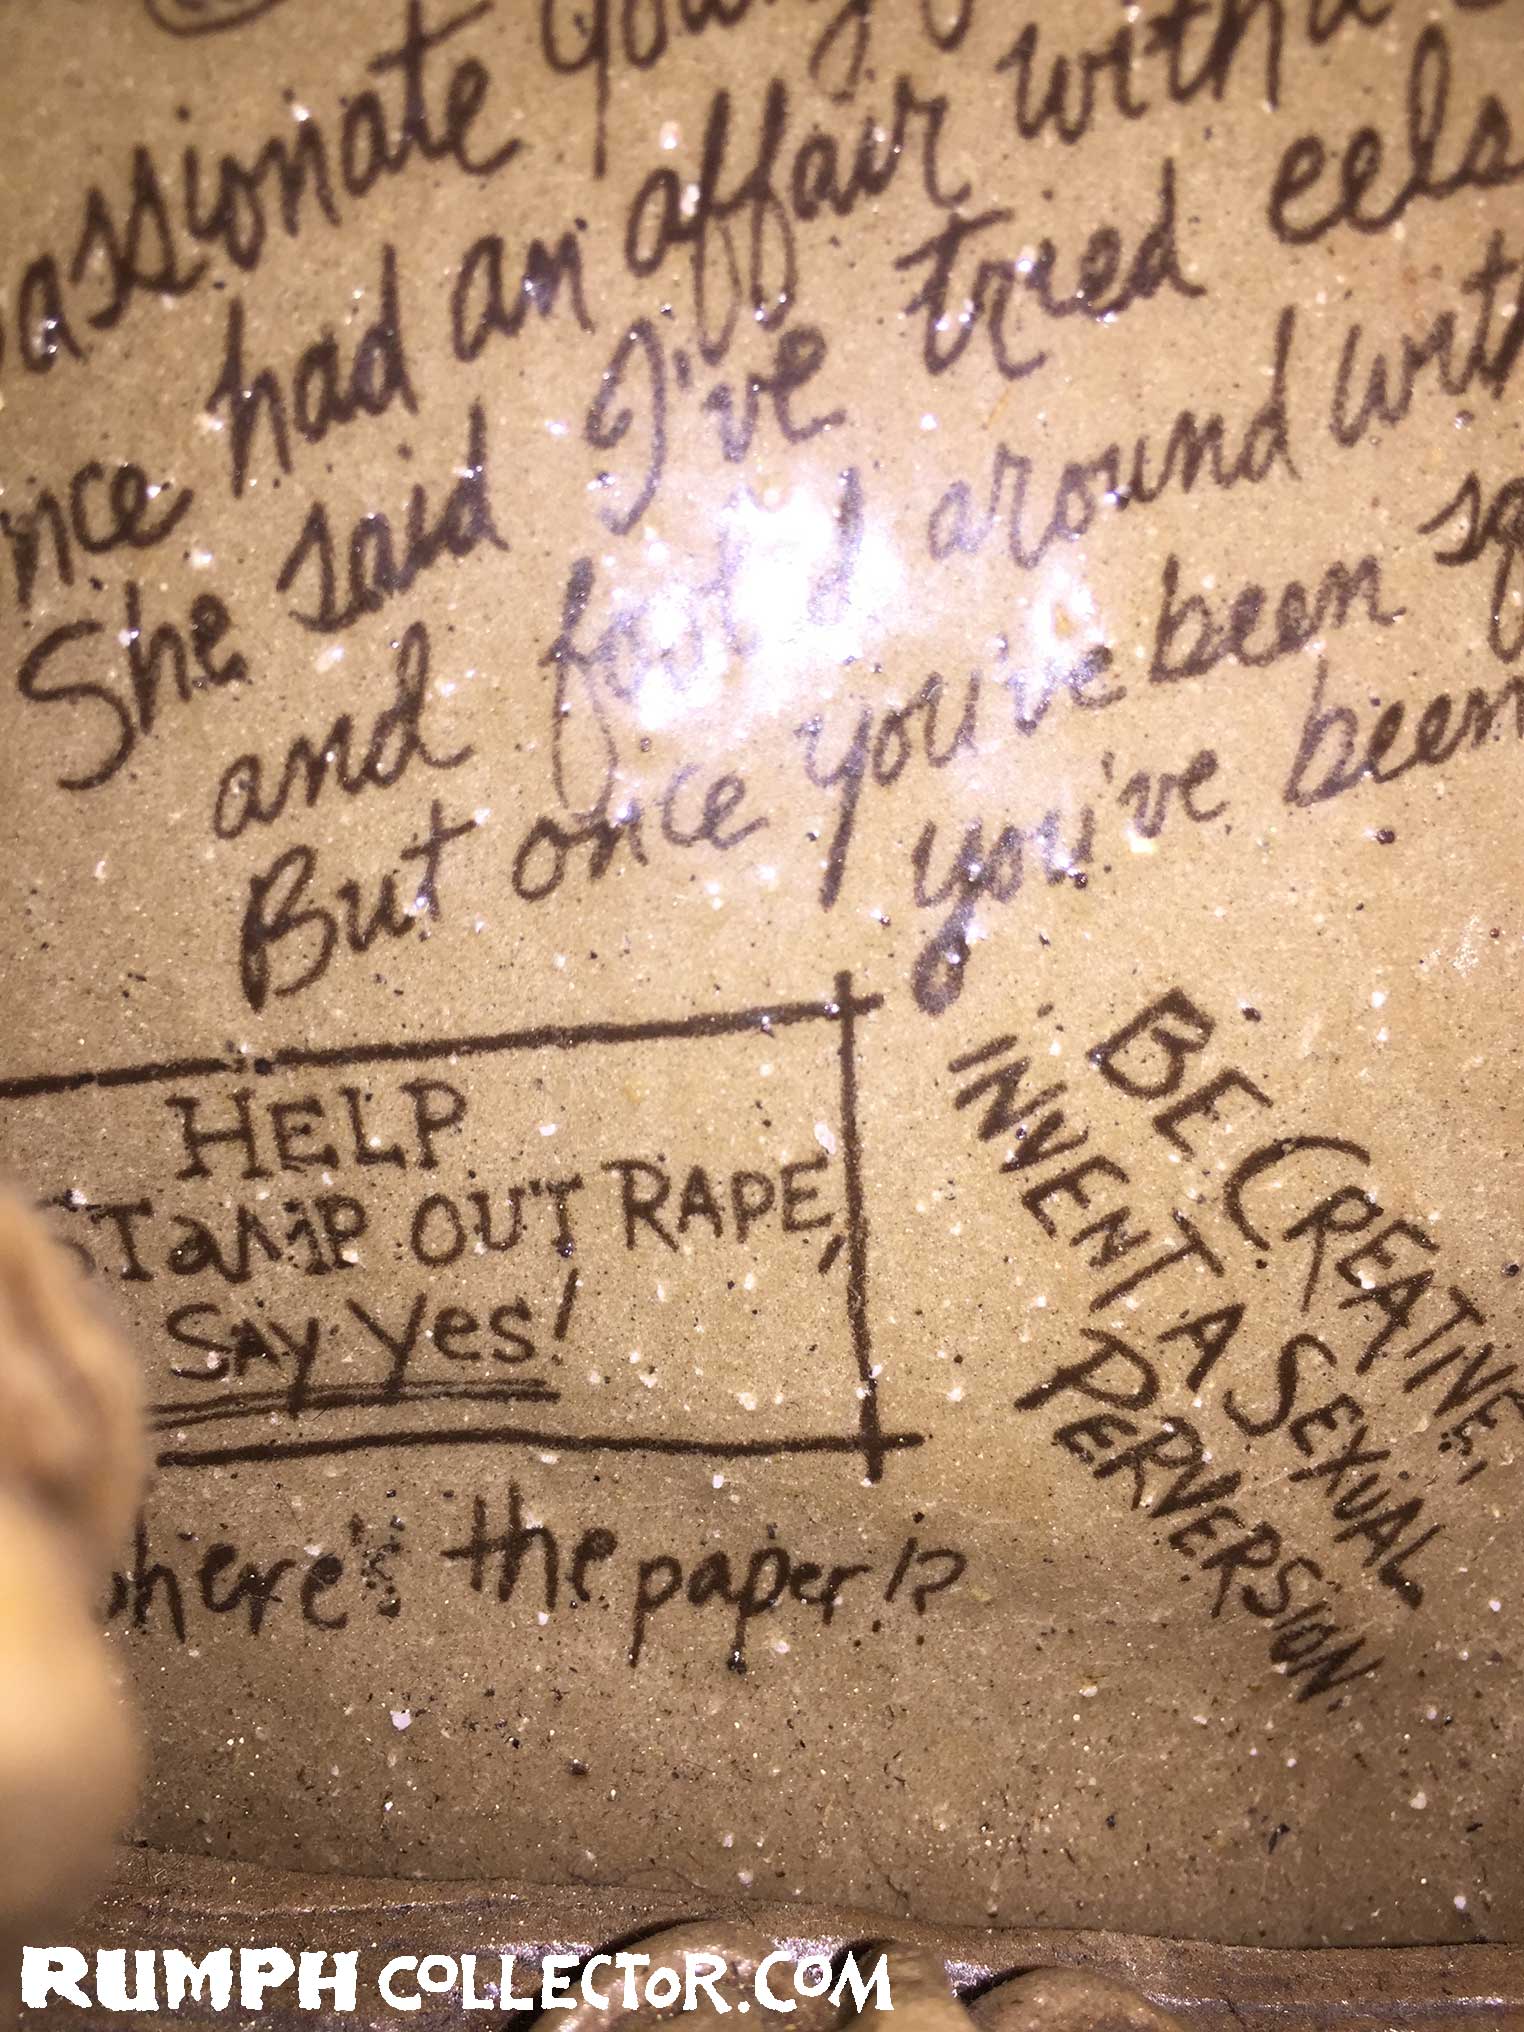 assionate young
nce had an affair with a
She said I've tried eels
and around with
But once you've been
you've been
HELP
STAMP OUT RAPE,
SAY Yes!
BE CREATIVE,
INVENT A SEXUAL
PERVERSION
here's the paper!?
RUMPH COLLECTOR.COM